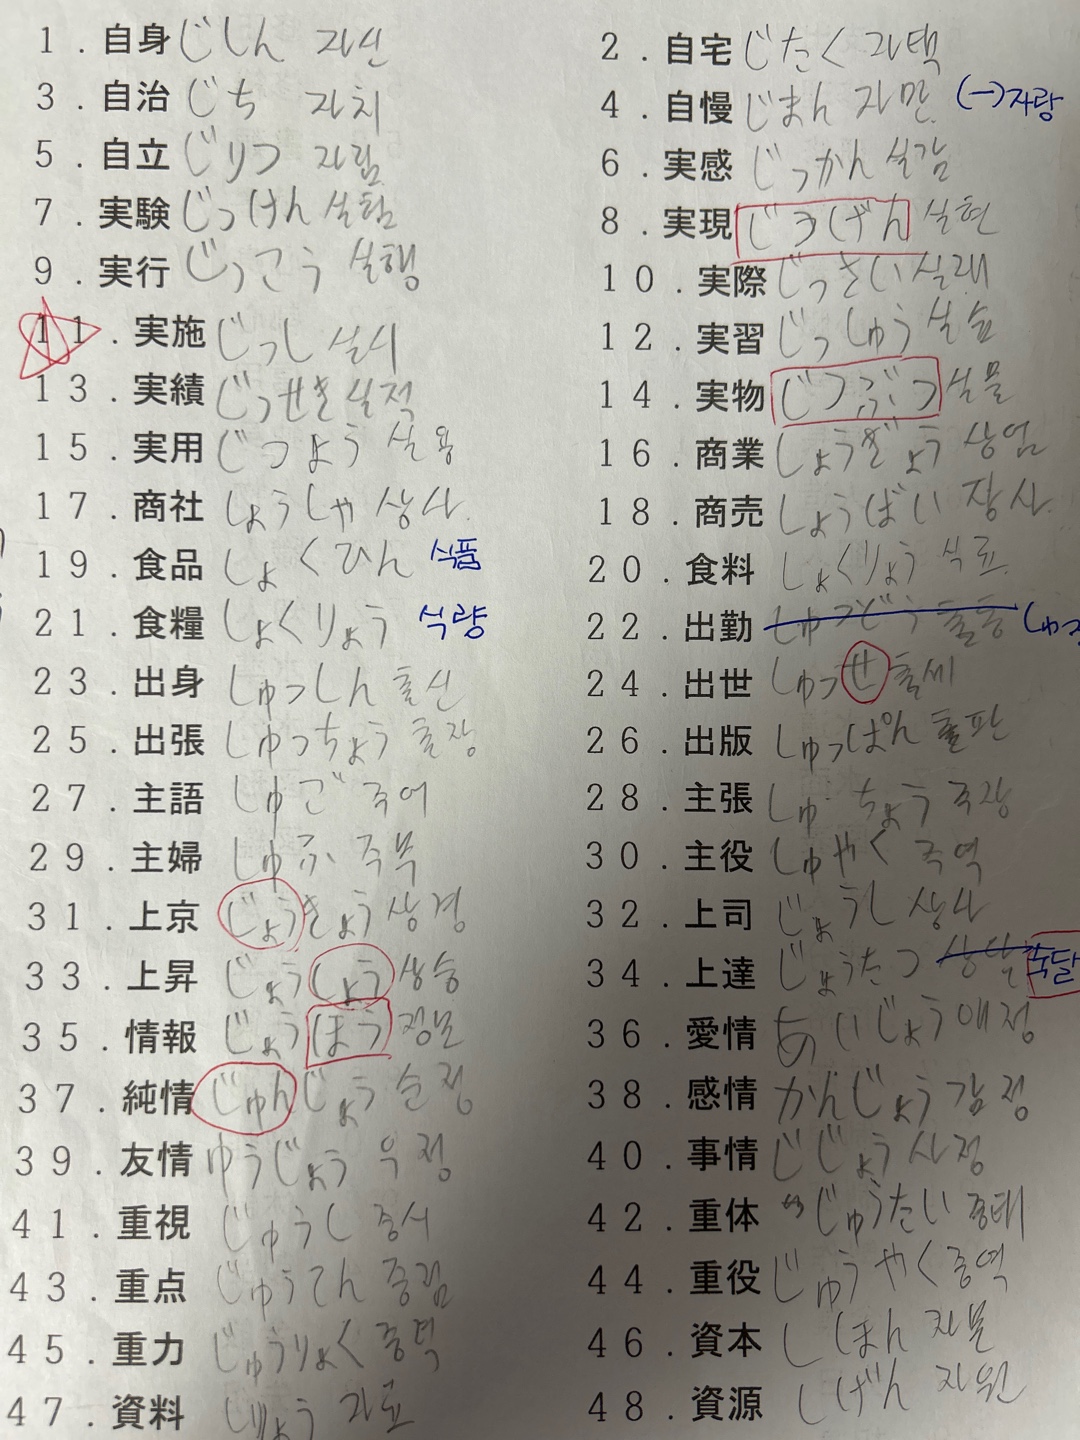 1.自身 じしん 자신
2.自宅 じたく 자택
3.自治 じち 자치
4.自慢 じまん 자만 (一)자랑
5.自立 じりつ 자립
6.実感 じっかん 실감
7.実験 じっけん 실험
8.実現 じつげん 실현
9.実行 じっこう 실행
10.実際 じっさい 실래
11.実施 じっし 실시
12.実習 じっしゅう 실습
13.実績 じっせき 실적
14.実物 じつぶつ 실물
15.実用 じつよう 실용
16.商業 しょうぎょう 상업
17.商社 しょうしゃ 상사
18.商売 しょうばい 장사
19.食品 しょくひん 식품
20.食料 しょくりょう 식료
21.食糧 しょくりょう 식량
22.出勤 しゅつどう 출동
23.出身 しゅっしん 출신
24.出世 しゅっせ 출세
25.出張 しゅっちょう 출장
26.出版 しゅっぱん 출판
27.主語 しゅご 주어
28.主張 しゅちょう 주장
29.主婦 しゅふ 주부
30.主役 しゅやく 주역
31.上京 じょうきょう 상경
32.上司 じょうし 상사
33.上昇 じょうしょう 상승
34.上達 じょうたつ 상달 숙달
35.情報 じょうほう 정보
36.愛情 あいじょう 애정
37.純情 じゅんじょう 순정
38.感情 かんじょう 감정
39.友情 ゆうじょう 우정
40.事情 じじょう 사정
41.重視 じゅうし 중시
42.重体 じゅうたい 중태
43.重点 じゅうてん 중점
44.重役 じゅうやく 중역
45.重力 じゅうりょく 중력
46.資本 しほん 자본
47.資料 しりょう 자료
48.資源 しげん 자원